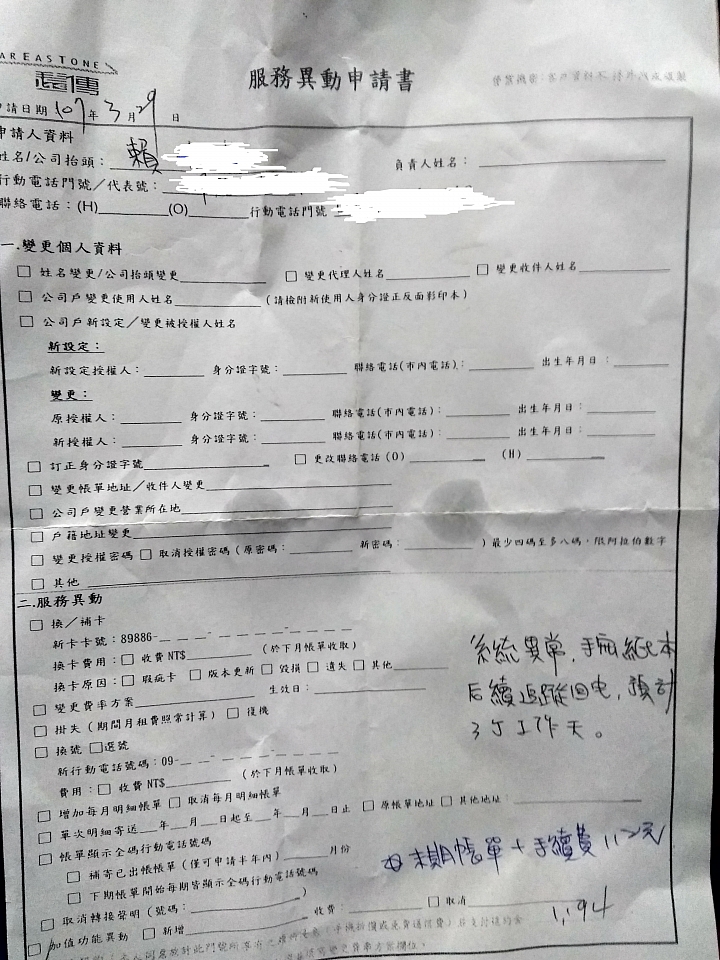 AREASTONE
遠傳
服務異動申請書
申請日期 107 年 3 月 29 日
申請人資料
姓名/公司抬頭: 賴
負責人姓名:
行動電話門號/代表號:
聯絡電話:(H) (O) 行動電話門號
一.變更個人資料
□ 姓名變更/公司抬頭變更 □ 變更代理人姓名 □ 變更收件人姓名
□ 公司戶變更使用人姓名 (請檢附新使用人身分證正反面影印本)
□ 公司戶新設定/變更被授權人姓名
新設定:
新設定授權人: 身分證字號: 聯絡電話(市內電話): 出生年月日:
變更:
原授權人: 身分證字號: 聯絡電話(市內電話): 出生年月日:
新授權人: 身分證字號: 聯絡電話(市內電話): 出生年月日:
□ 訂正身分證字號 □ 更改聯絡電話(O) (H)
□ 變更帳單地址/收件人變更
□ 公司戶變更營業所在地
□ 戶籍地址變更
□ 變更授權密碼 □ 取消授權密碼(原密碼: 新密碼: )最少四碼至多八碼,限阿拉伯數字
□ 其他
二.服務異動
□ 換/補卡
新卡卡號:89886-
換卡費用:□ 收費 NT$ (於下月帳單收取)
換卡原因:□ 瑕疵卡 □ 版本更新 □ 毀損 □ 遺失 □ 其他
□ 變更費率方案 生效日:
□ 掛失(期間月租費照常計算) □ 復機
□ 換號 □選號
新行動電話號碼:09-
費用:□ 收費 NT$ (於下月帳單收取)
系統異常,手開紙本
后續追蹤回电,預計
3丁工作天。
□ 增加每月明細帳單 □ 取消每月明細帳單
□ 單次明細寄送 年 月 日起至 年 月 日止 □ 原帳單地址 □ 其他地址:
□ 帳單顯示全碼行動電話號碼
□ 補寄已出帳帳單(僅可申請半年內) 月份
□ 下期帳單開始每期皆顯示全碼行動電話號碼
末期帳單+手續費
□ 取消轉接聲明(號碼: ) 收費: □ 取消
□ 加值功能異動 □ 新增
1,94